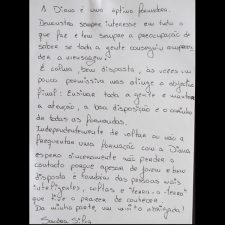 A Diana é uma óptima formadora.
Demonstra sempre interesse em tudo o
que faz e tem sempre a preocupação de
saber se toda a gente conseguiu compreen-
der a mensagem.
É calma, bem disposta, as vezes um
pouco permissiva mas atinge o objectivo
final: Ensinar toda a gente e manter
a atenção, a boa disposição e o carinho
de todos os formandos.
Independentemente de voltar ou não a
frequentar uma formação com a Diana
espero sinceramente não perder o
contacto porque apesar de jovem e bem
disposta é também das pessoas mais
inteligentes, cultas e "terra-a-terra"
que tive o prazer de conhecer.
Da minha parte, um muito obrigada!
Sandra Silva